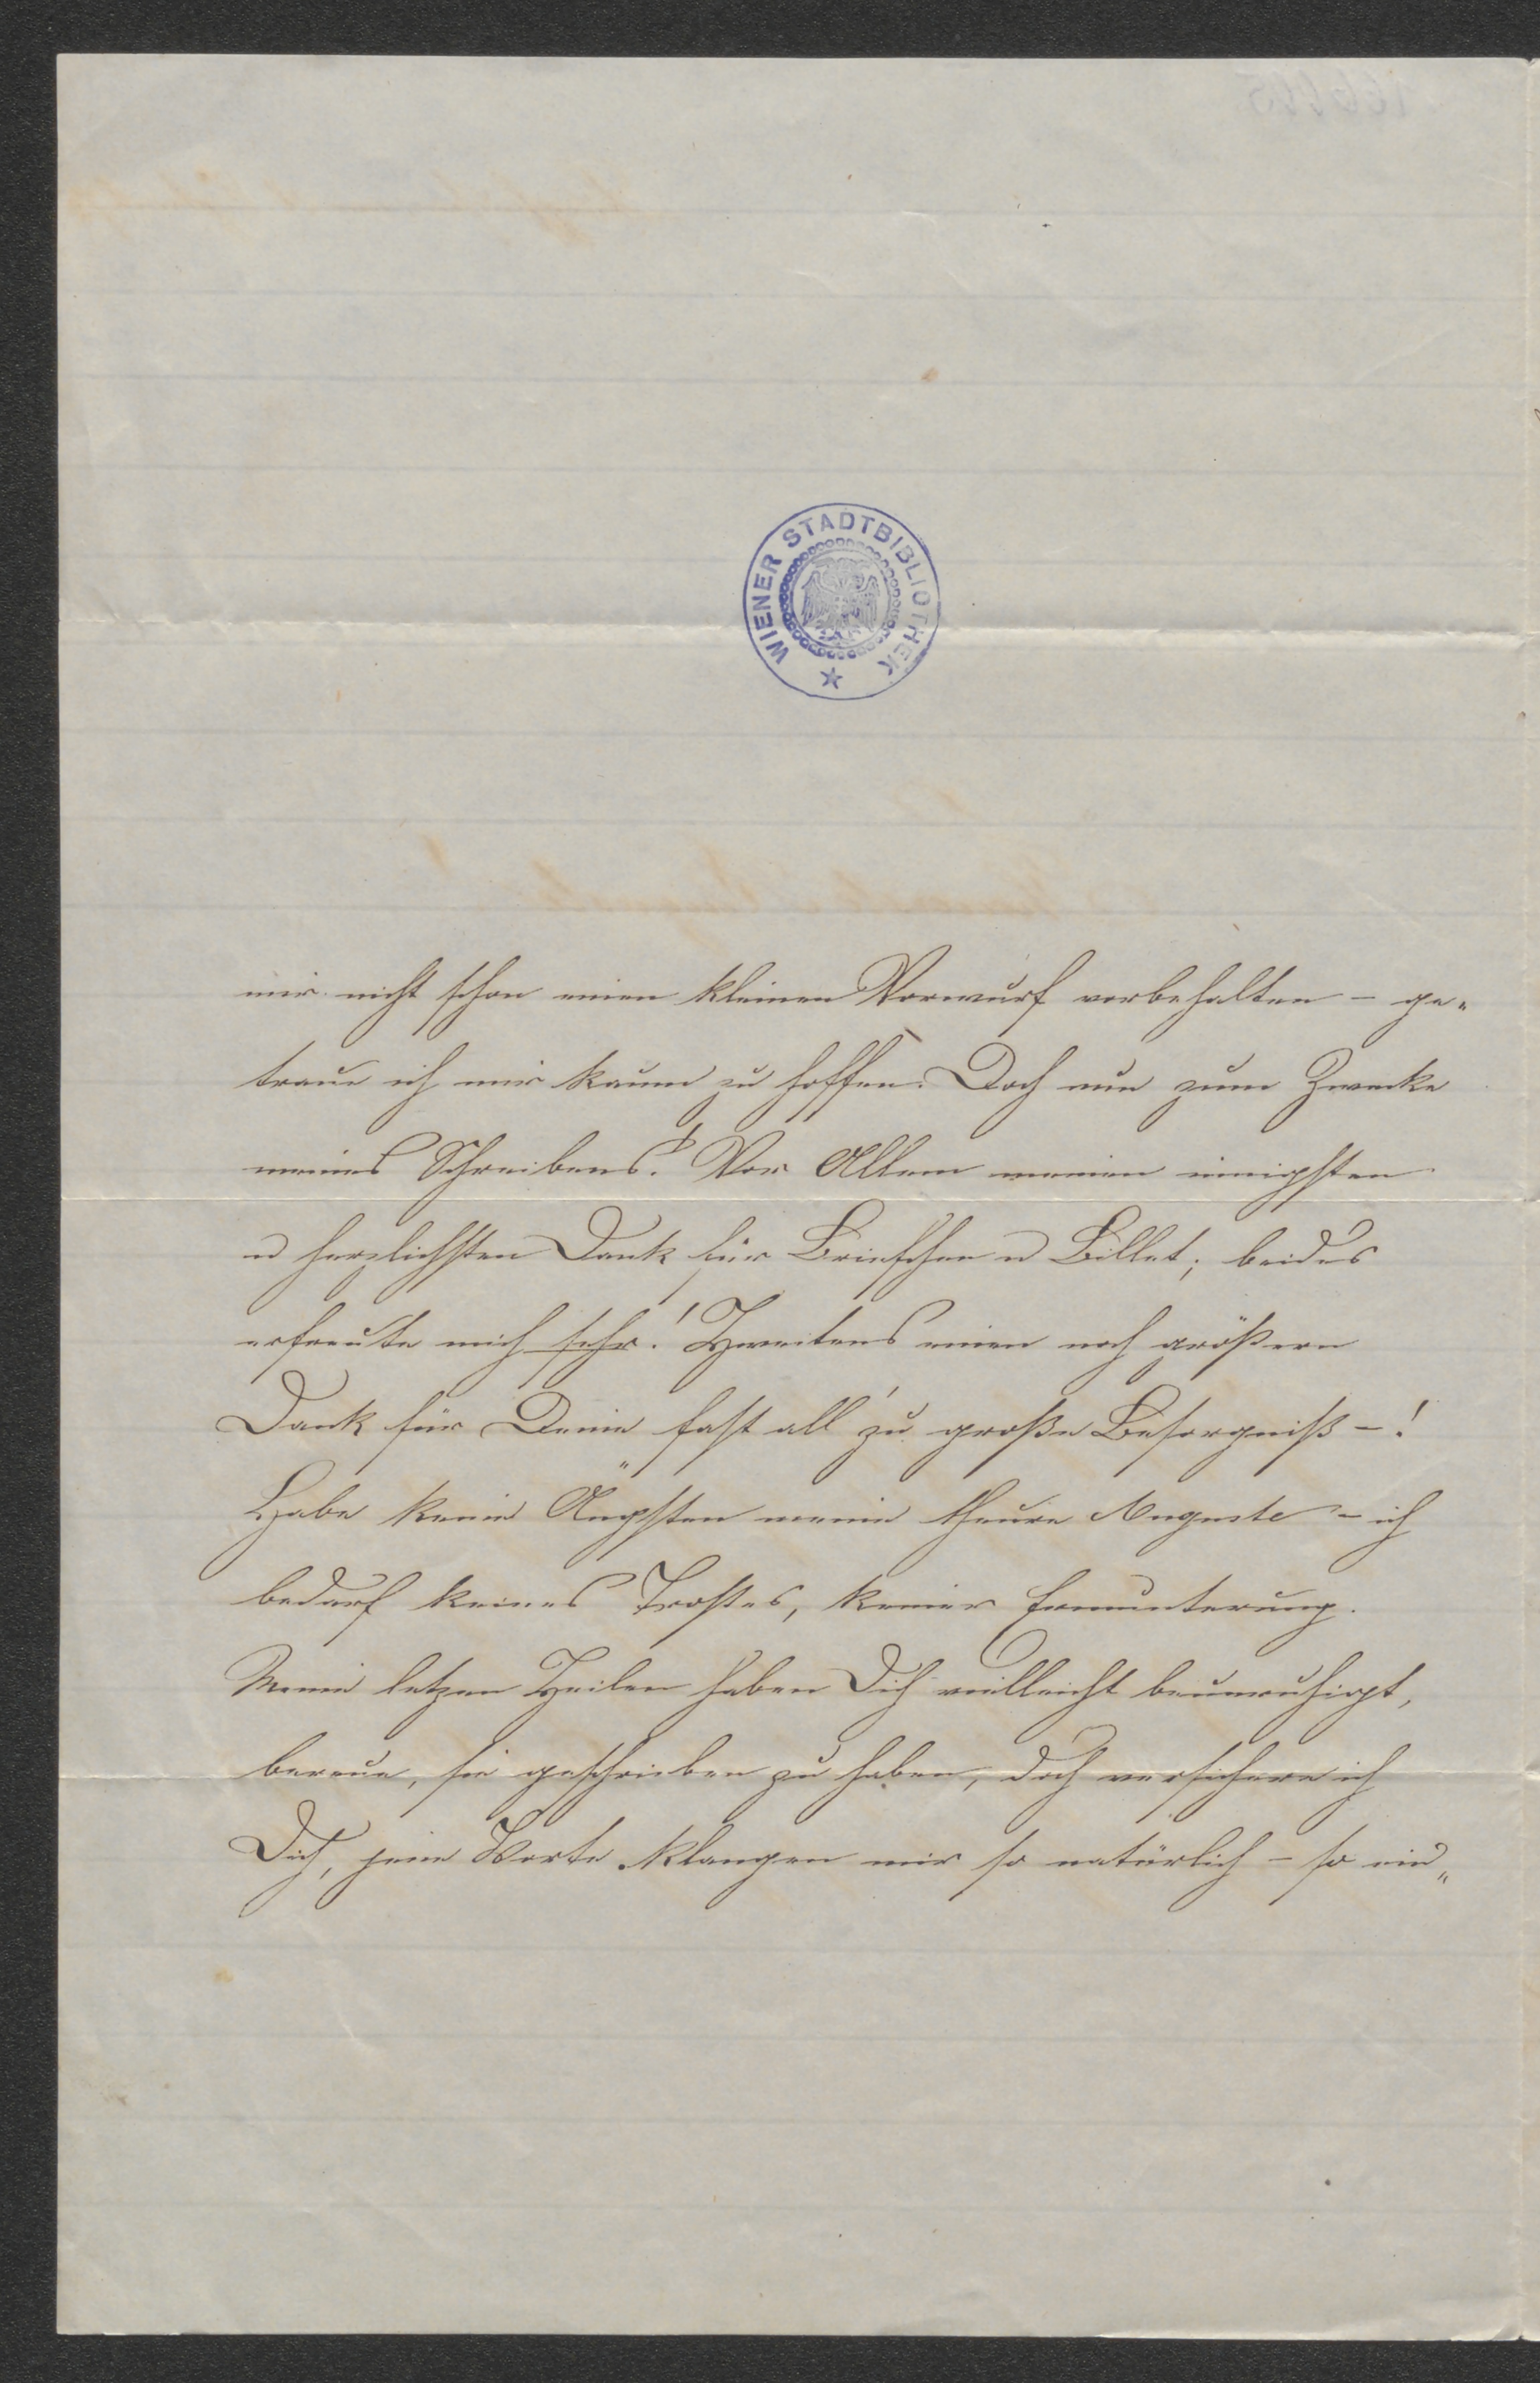 WIENER STADTBIBLIOTHEK
mir nicht schon einen kleinen Vorwurf vorbehalten – ge-
traue ich mir kaum zu hoffen. Doch nun zum Zwecke
meines Schreibens! Vor Allem meinen innigsten
u herzlichsten Dank für Briefchen u Billet; beides
erfreute mich sehr! Zweitens einen noch größern
Dank für Deine fast all' zu große Besorgniß –!
Habe keine Ängsten meine theure Auguste – ich
bedarf keines Trostes, keiner Ermunterung.
Meine letzen Zeilen haben Dich vielleicht beunruhigt,
bereue, sie geschrieben zu haben, doch versichere ich
Dich, jene Worte klangen mir so natürlich – so ein„